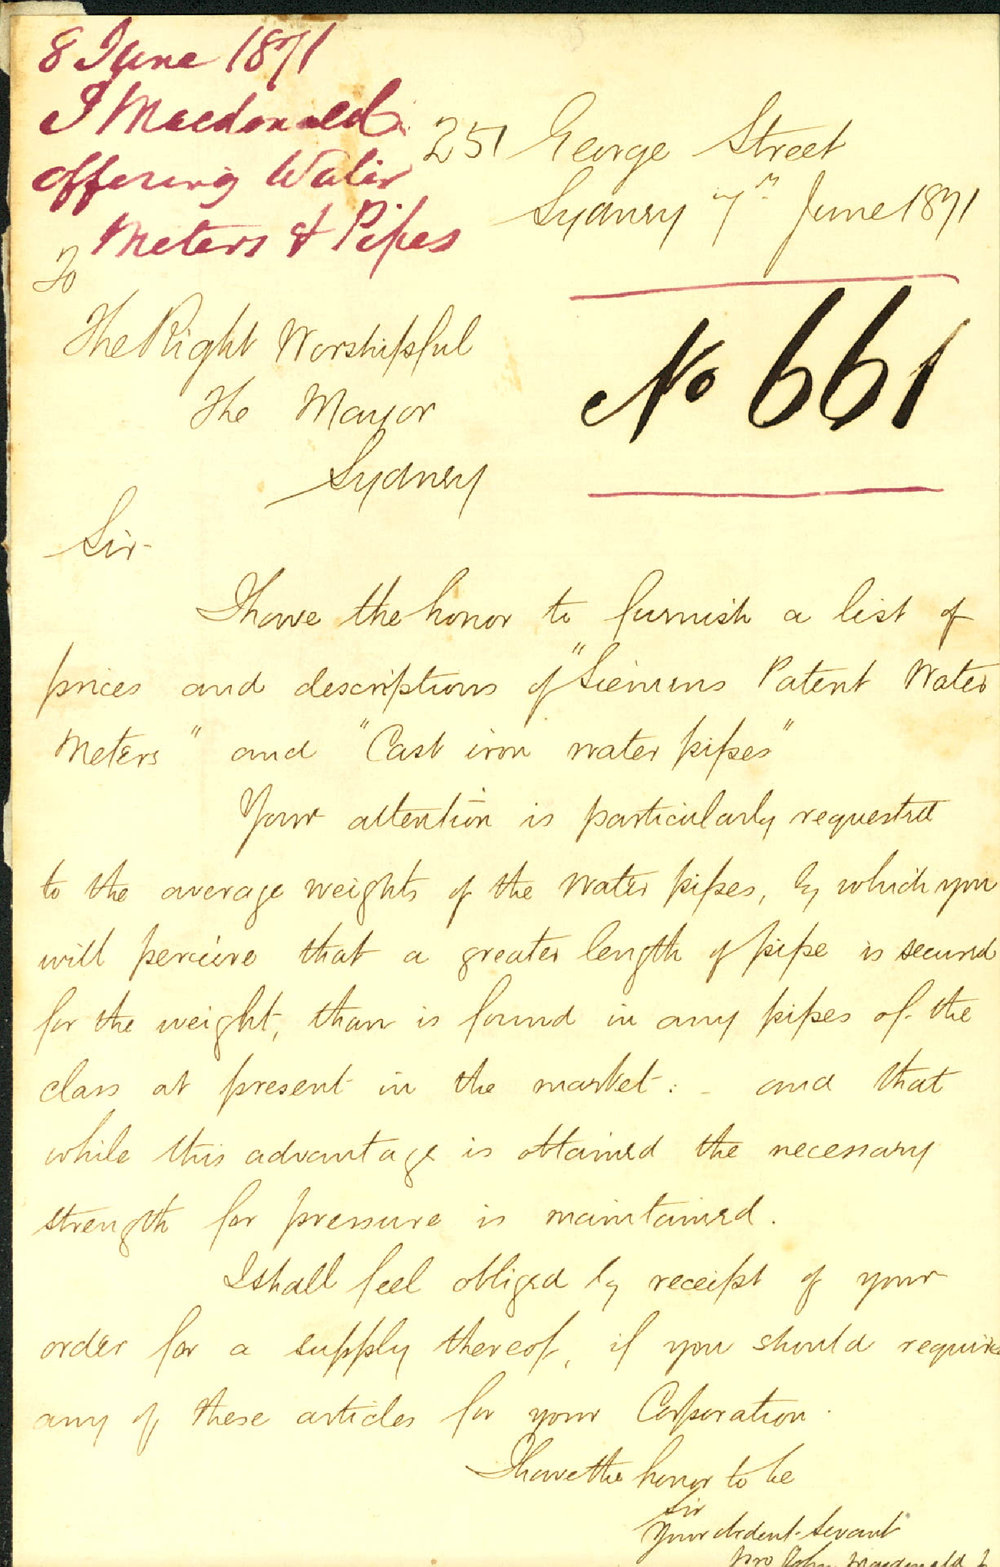 8 June 1871
J Macdonald
offering Water
Meters & Pipes
251 George Street
Sydney 7th June 1871
No 661
To
The Right Worshipful
The Mayor
Sydney
Sir
I have the honor to furnish a list of
prices and descriptions of "Siemens Patent Water
Meters" and "Cast iron water pipes"
Your attention is particularly requested
to the average weights of the water pipes, by which you
will perceive that a greater length of pipe is secured
for the weight, than is found in any pipes of the
class at present in the market: - and that
while this advantage is obtained the necessary
strength for pressure is maintained.
I shall feel obliged by receipt of your
order for a supply thereof, if you should require
any of these articles for your Corporation.
I have the honor to be
Sir
Your obdent Servant
pro John Macdonald